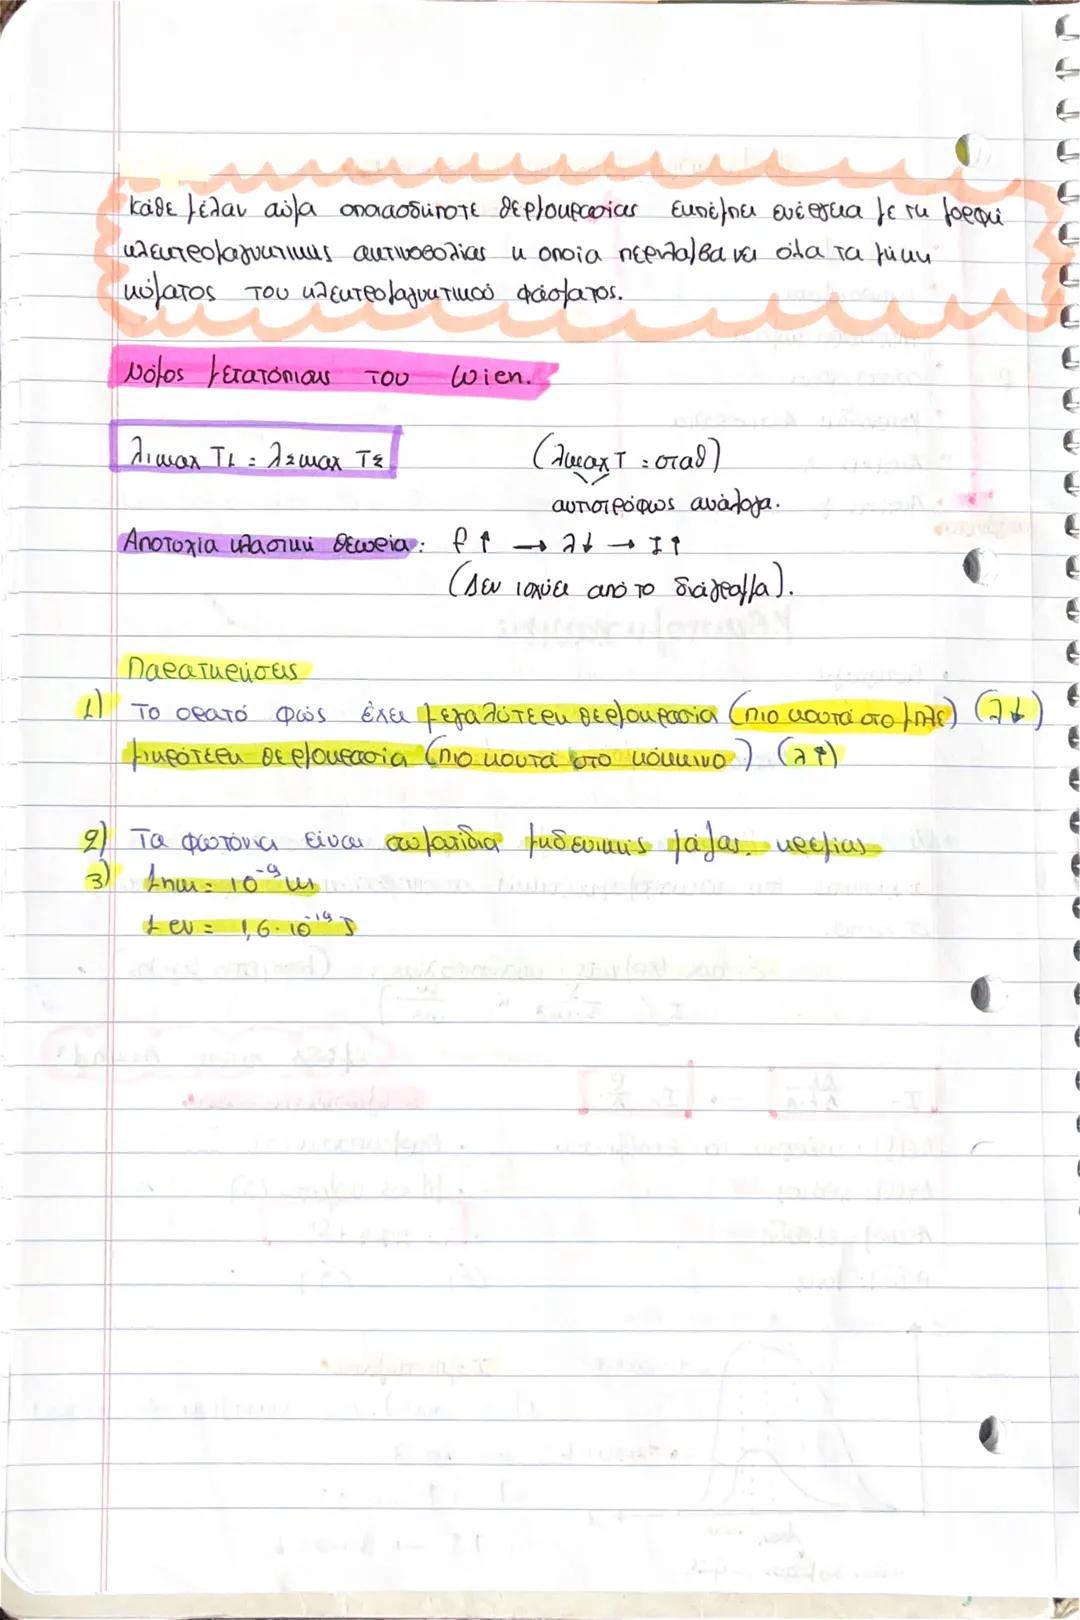 κάθε μέλαν σώμα οποιασδήποτε θερμοκρασίας εκπέμπει ενέργεια με τη μορφή
ηλεκτρομαγνητικής ακτινοβολίας η οποία περιλαμβάνει όλα τα μήκη
κύματος του ηλεκτρομαγνητικού φάσματος.
Νόμος μετατόπισης του Wien.
λ1max T1 = λ2max T2 (λmax T = σταθ)
αντιστρόφως ανάλογα.
Αποτυχία κλασική θεωρία: f↑ → λ↓ → I↑
(Δεν ισχύει από το διάγραμμα).
Παρατηρήσεις
1) Το ορατό φως έχει μεγαλύτερη θερμοκρασία (πιο κοντά στο μπλε) (λ↓)
μικρότερη θερμοκρασία (πιο κοντά στο κόκκινο) (λ↑)
2) Τα φωτόνια είναι σωματίδια μηδενικής μάζας ηρεμίας
3) 1nm = 10⁻⁹ m
1 eV = 1,6·10⁻¹⁹ J